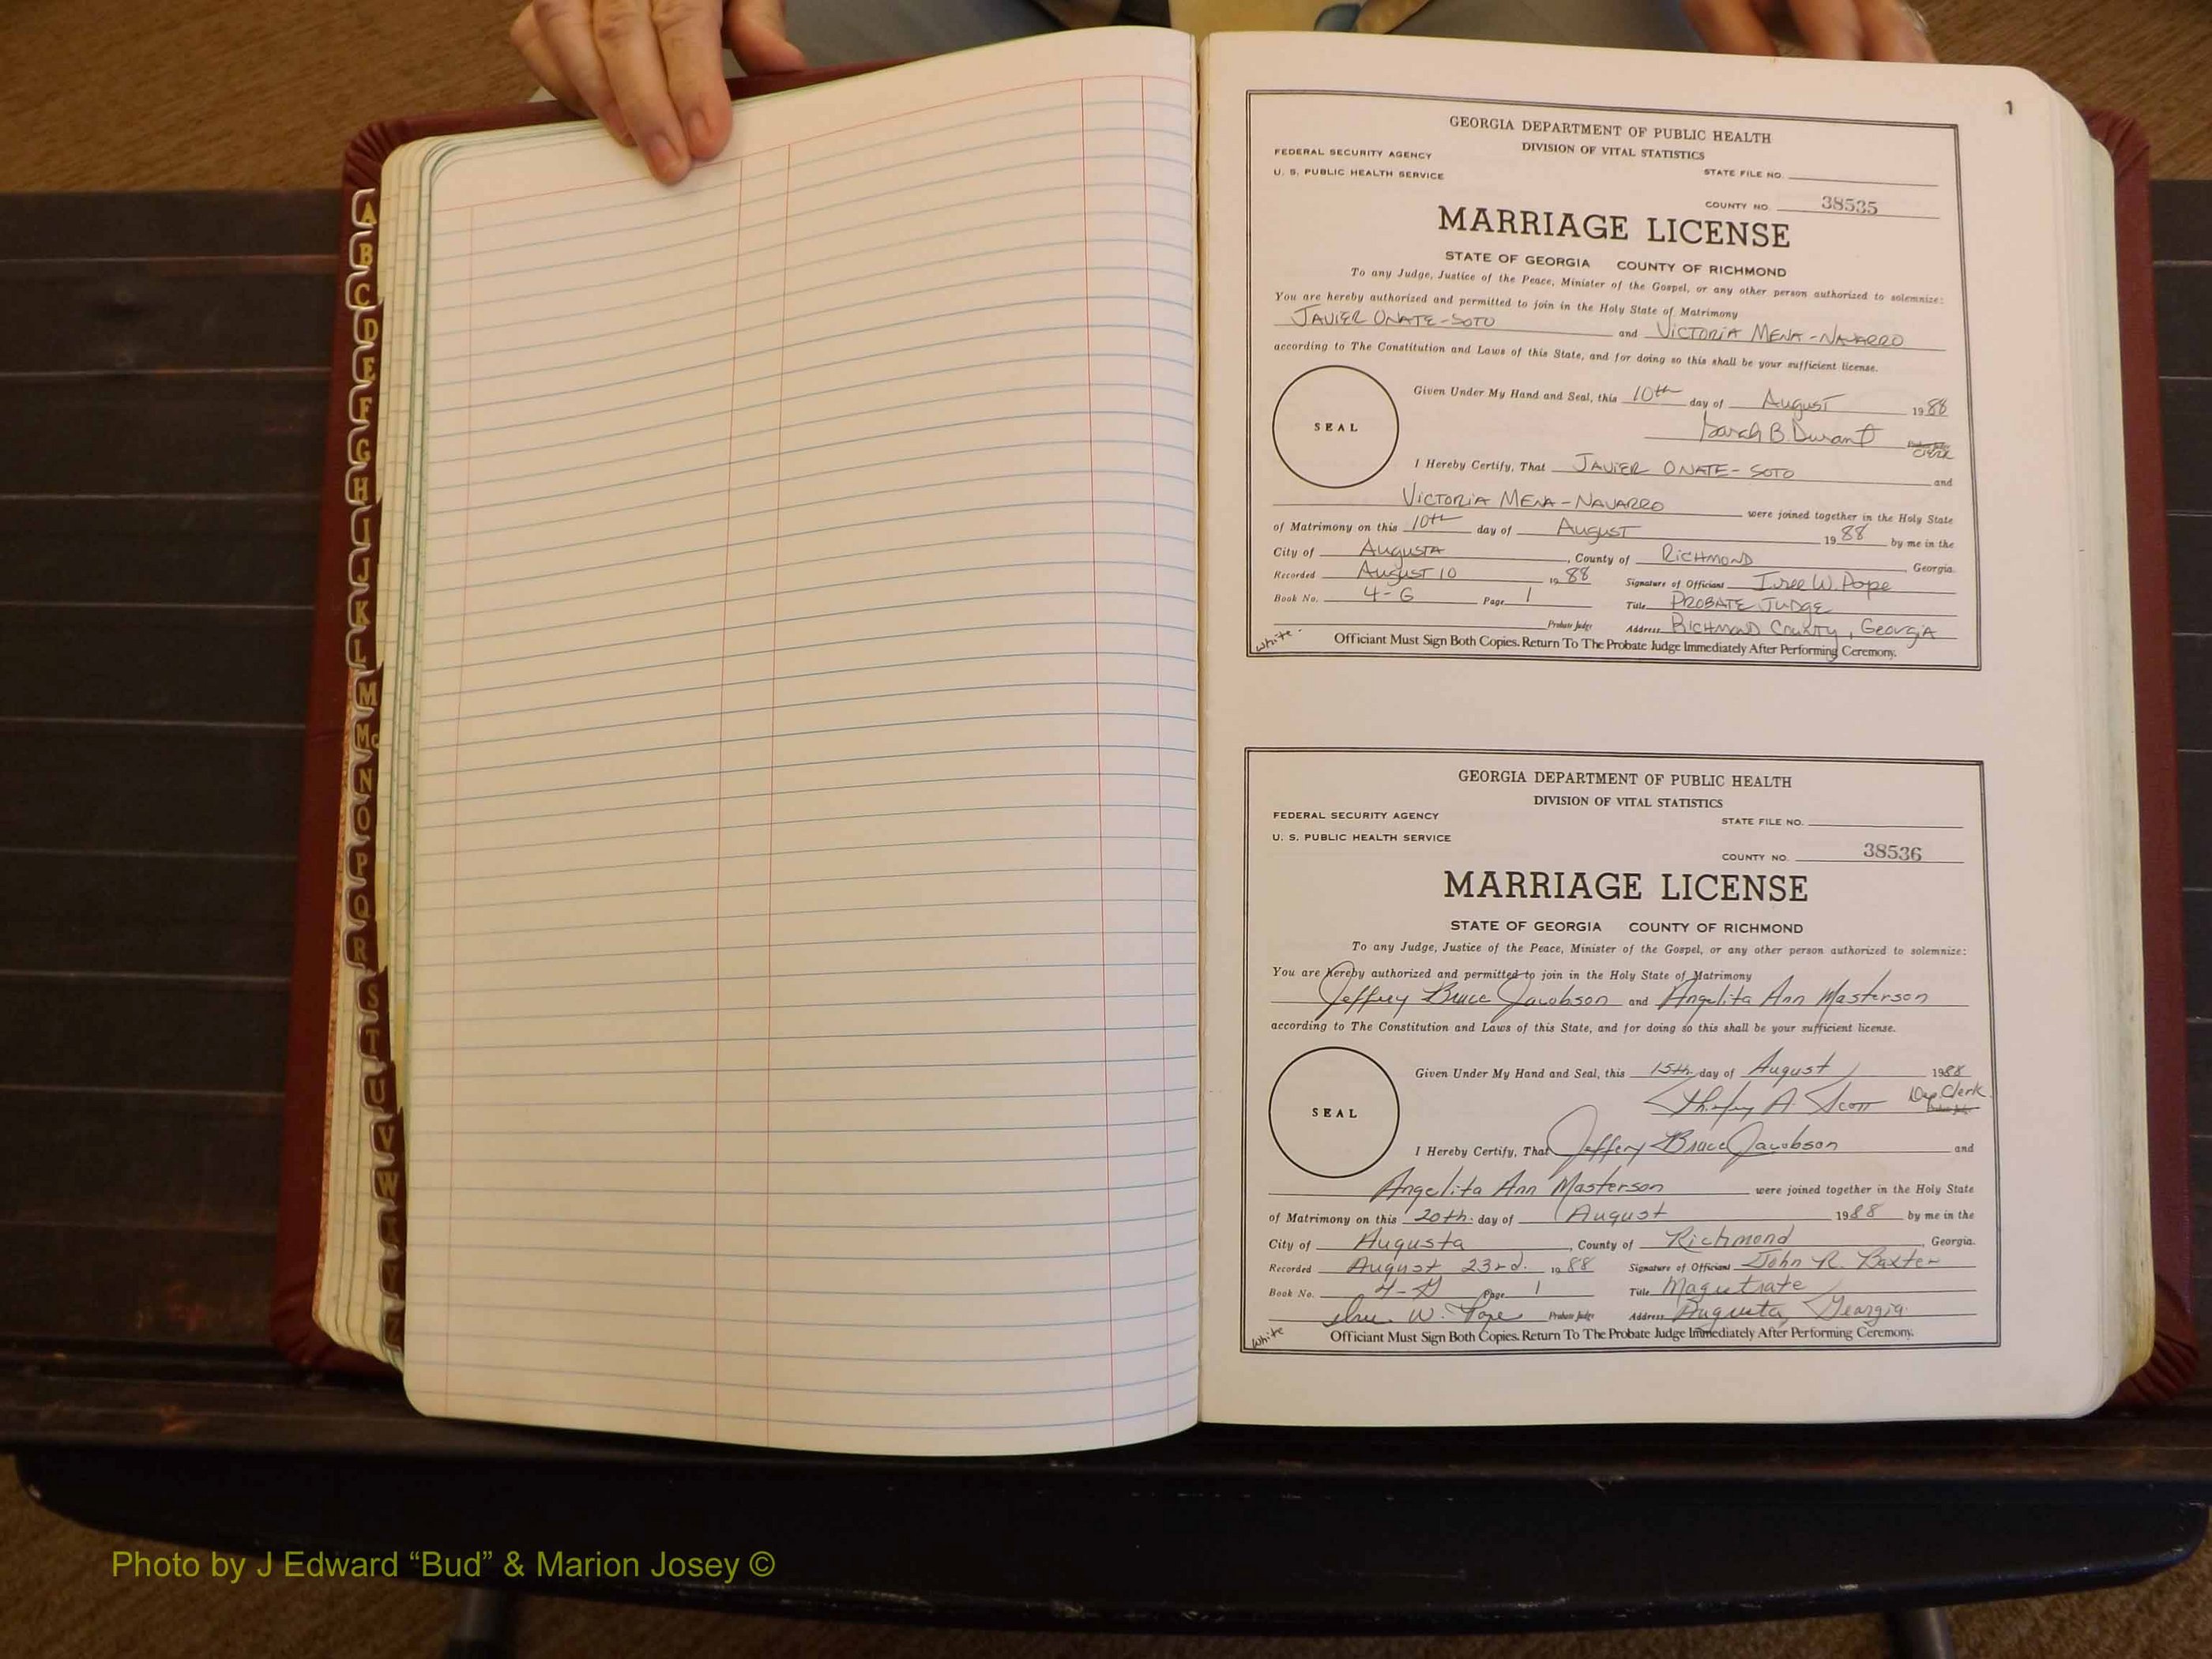 A
B
C
D
E
F
G
H
I
J
K
L
M
Mc
N
O
P
Q
R
S
T
U
V
W
1
GEORGIA DEPARTMENT OF PUBLIC HEALTH
DIVISION OF VITAL STATISTICS
FEDERAL SECURITY AGENCY
U. S. PUBLIC HEALTH SERVICE
STATE FILE NO.
COUNTY NO. 38535
MARRIAGE LICENSE
STATE OF GEORGIA COUNTY OF RICHMOND
To any Judge, Justice of the Peace, Minister of the Gospel, or any other person authorized to solemnize:
You are hereby authorized and permitted to join in the Holy State of Matrimony
JAVIER ONATE-SOTO and VICTORIA MENA-NAVARRO
according to The Constitution and Laws of this State, and for doing so this shall be your sufficient license.
SEAL
Given Under My Hand and Seal, this 10th day of August 1988
Sarah B. Durant Probate Judge
Clerk
I Hereby Certify, That JAVIER ONATE-SOTO and
VICTORIA MENA-NAVARRO were joined together in the Holy State
of Matrimony on this 10th day of August 1988 by me in the
City of Augusta, County of RICHMOND Georgia.
Recorded August 10 1988 Signature of Officiant W. Pope
Book No. 4-G Page 1 Title PROBATE JUDGE
Probate Judge Address RICHMOND County, GEORGIA
White Officiant Must Sign Both Copies. Return To The Probate Judge Immediately After Performing Ceremony.
GEORGIA DEPARTMENT OF PUBLIC HEALTH
DIVISION OF VITAL STATISTICS
FEDERAL SECURITY AGENCY
U. S. PUBLIC HEALTH SERVICE
STATE FILE NO.
COUNTY NO. 38536
MARRIAGE LICENSE
STATE OF GEORGIA COUNTY OF RICHMOND
To any Judge, Justice of the Peace, Minister of the Gospel, or any other person authorized to solemnize:
You are hereby authorized and permitted to join in the Holy State of Matrimony
Jeffrey Bruce Jacobson and Angelita Ann Masterson
according to The Constitution and Laws of this State, and for doing so this shall be your sufficient license.
SEAL
Given Under My Hand and Seal, this 15th day of August 1988
A. Scott Dep. Clerk
Probate Judge
I Hereby Certify, That Jeffery Bruce Jacobson and
Angelita Ann Masterson were joined together in the Holy State
of Matrimony on this 20th day of August 1988 by me in the
City of Augusta, County of Richmond, Georgia.
Recorded August 23rd. 1988 Signature of Officiant John R. Baxter
Book No. Page 1 Title Magistrate
W. Pope Probate Judge Address Augusta, Georgia
White Officiant Must Sign Both Copies. Return To The Probate Judge Immediately After Performing Ceremony.
Photo by J Edward “Bud” & Marion Josey ©